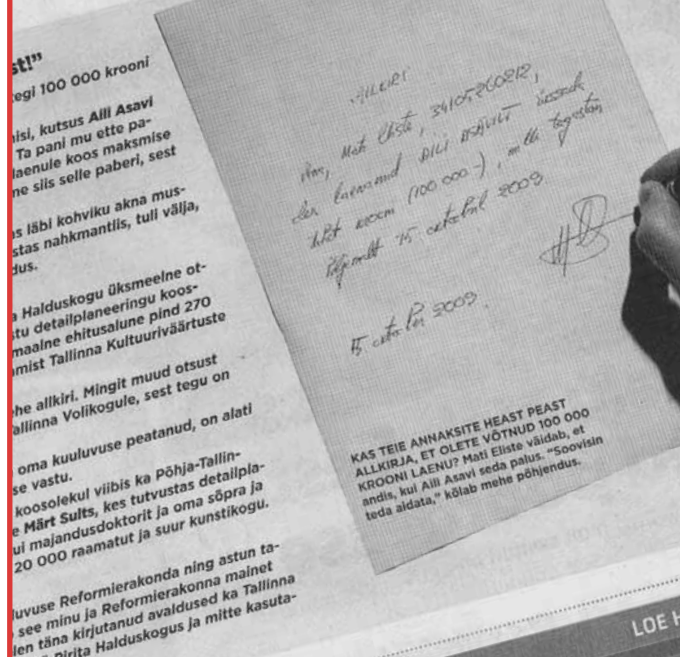 st!"
tegi 100 000 krooni
isi, kutsus Aili Asavi
Ta pani mu ette pa-
laenule koos maksmise
ne siis selle paberi, sest
s läbi kohviku akna mus-
stas nahkmantlis, tuli välja,
dus.
Halduskogu üksmeelne ot-
stu detailplaneeringu koos-
maalne ehitusalune pind 270
mist Tallinna Kultuuriväärtuste
he allkiri. Mingit muud otsust
allinna Volikogule, sest tegu on
oma kuuluvuse peatanud, on alati
se vastu.
koosolekul viibis ka Põhja-Tallin-
e Märt Sults, kes tutvustas detailpla-
ui majandusdoktorit ja oma sõpra ja
20 000 raamatut ja suur kunstikogu.
luvuse Reformierakonda ning astun ta-
see minu ja Reformierakonna mainet
len täna kirjutanud avaldused ka Tallinna
Pirita Halduskogus ja mitte kasuta-
ALLKIRI
Mina, Mati Eliste, 34105260212,
olen laenanud AILI ASAVILT
krooni (100 000.-), mille tagastan
hiljemalt 15 oktoobril 2009.
15 oktoober 2009.
KAS TEIE ANNAKSITE HEAST PEAST
ALLKIRJA, ET OLETE VÕTNUD 100 000
KROONI LAENU? Mati Eliste väidab, et
andis, kui Aili Asavi seda palus. "Soovisin
teda aidata," kõlab mehe põhjendus.
LOE H